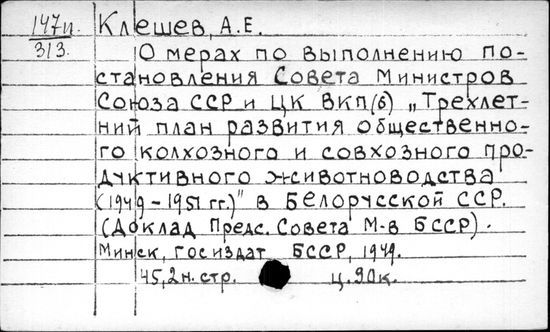 147п. Клешев, А.Е.
313
О мерах по выполнению по-
становления Совета Министров
Союза ССР и ЦК ВКП(б) „Трехлет-
ний план развития общественно-
го колхозного и совхозного про-
дуктивного животноводства
(1949-1951 гг.)" в Белорусской ССР.
(Доклад Предс. Совета М-в БССР).
Минск, Госиздат БССР, 1949.
45,2н. стр. ц. 90к.